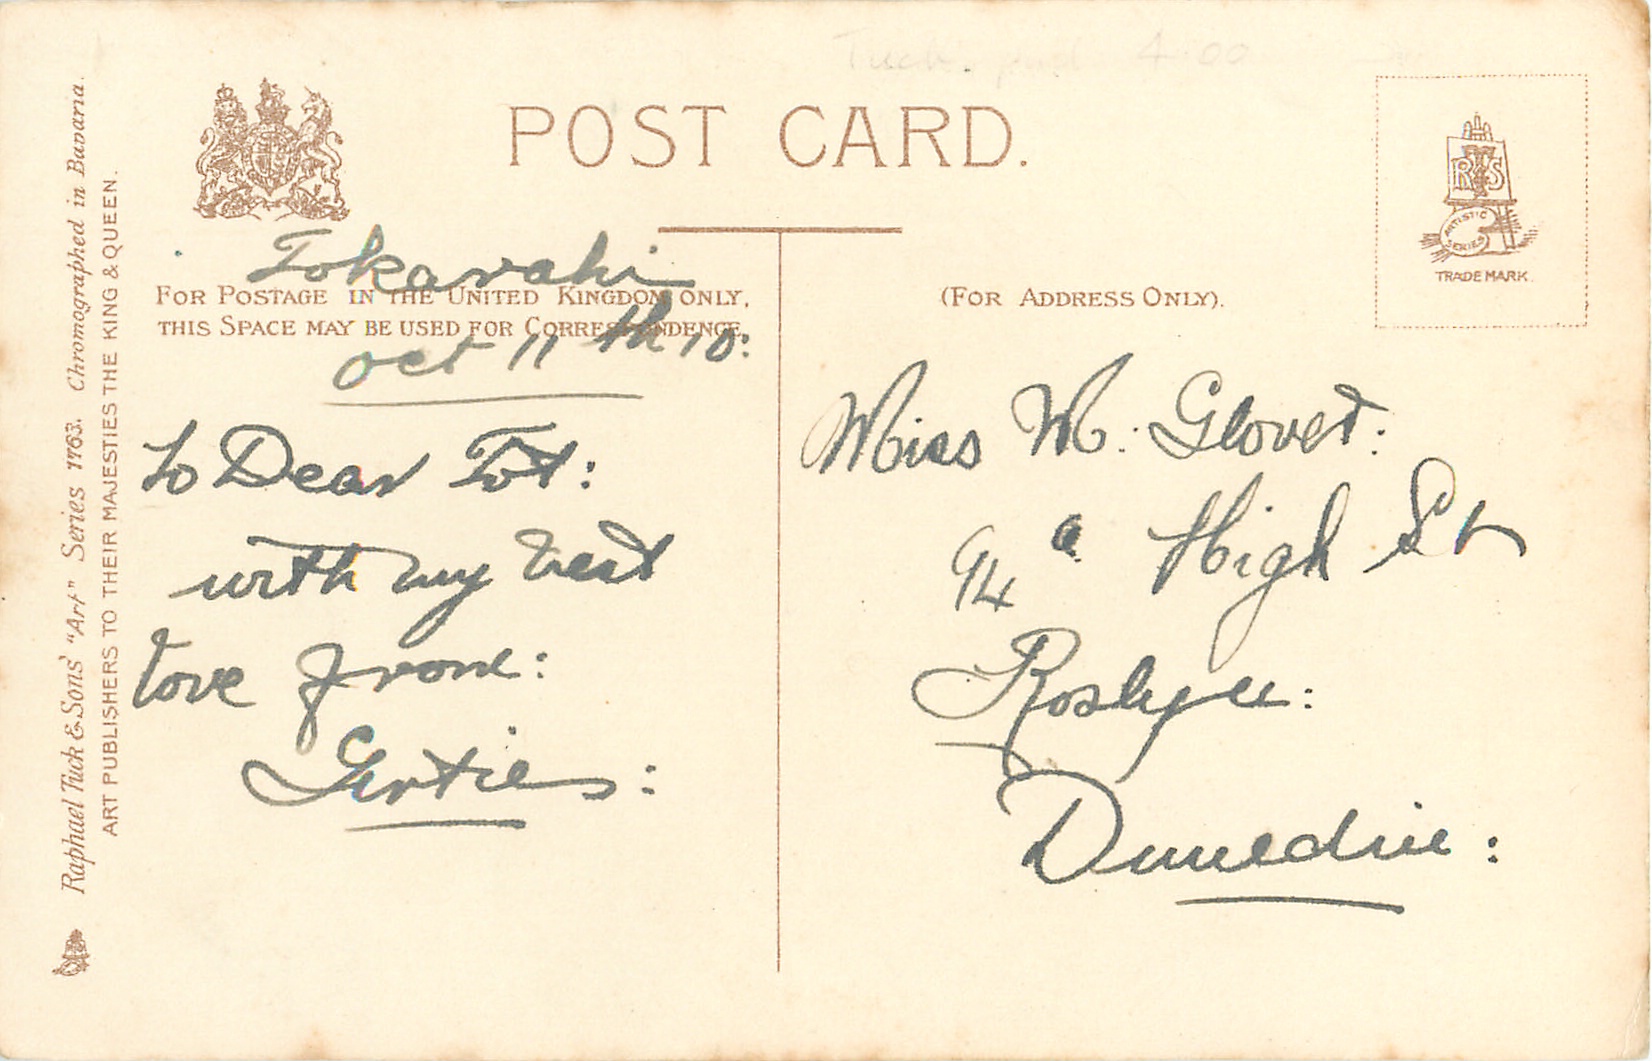 POST CARD.
RTS
ARTISTIC SERIES
TRADE MARK.
FOR POSTAGE IN THE UNITED KINGDOM ONLY,
THIS SPACE MAY BE USED FOR CORRESPONDENCE.
(FOR ADDRESS ONLY).
Raphael Tuck & Sons' "Art" Series 1763. Chromographed in Bavaria.
ART PUBLISHERS TO THEIR MAJESTIES THE KING & QUEEN.
Tuck. 4.00
Tokarahi
Oct 11th 10:
To Dear Tot:
with my best
love from:
Girties:
Miss M. Glover:
94a High St
Roslyn:
Dunedin: